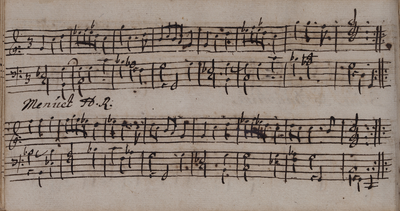 Menuet D. R.